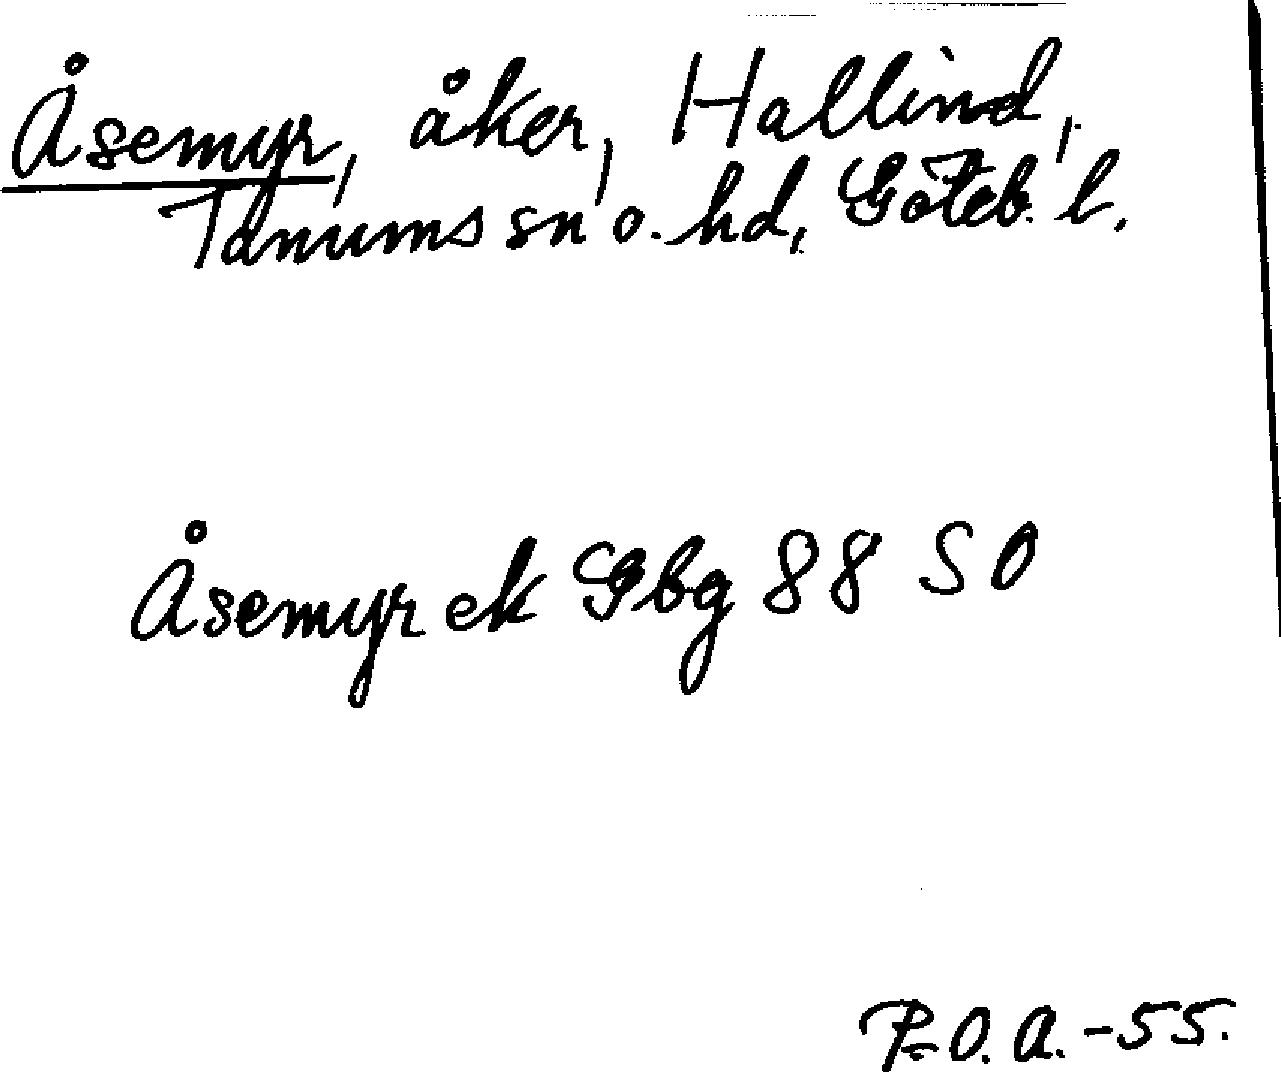 Åsemyr, åker, Hallind,
Tanums sn o. hd, Göteb. l.
Åsemyr ek Gbg 88 SO
P.O.A.-55.